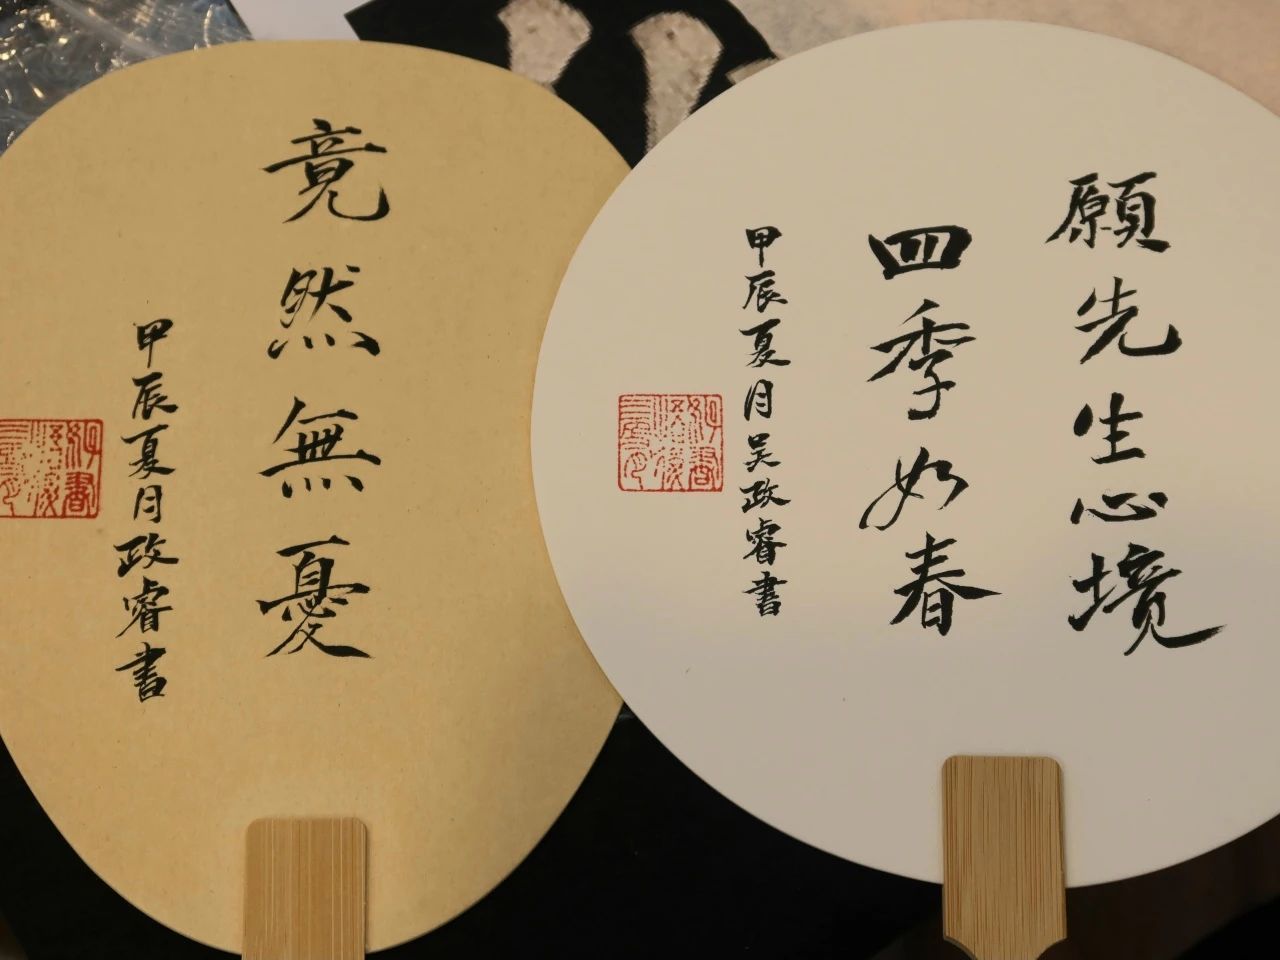 竟然無憂
甲辰夏月政睿書
願先生心境
四季如春
甲辰夏月吴政睿書